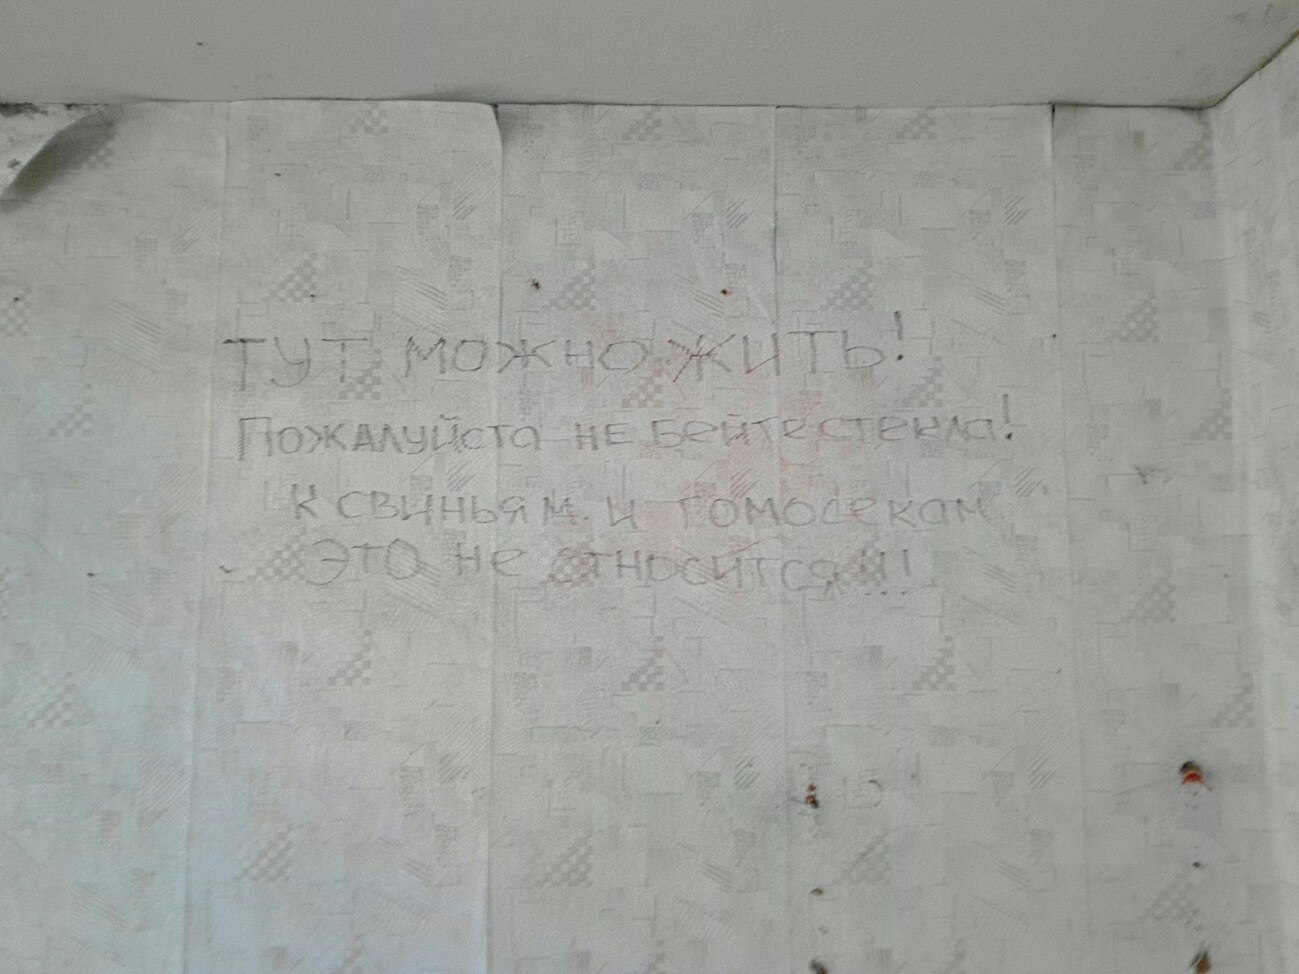 ТУТ МОЖНО ЖИТЬ!
Пожалуйста не бейте стекла!
К свиньям и гомосекам
это не относится!!!